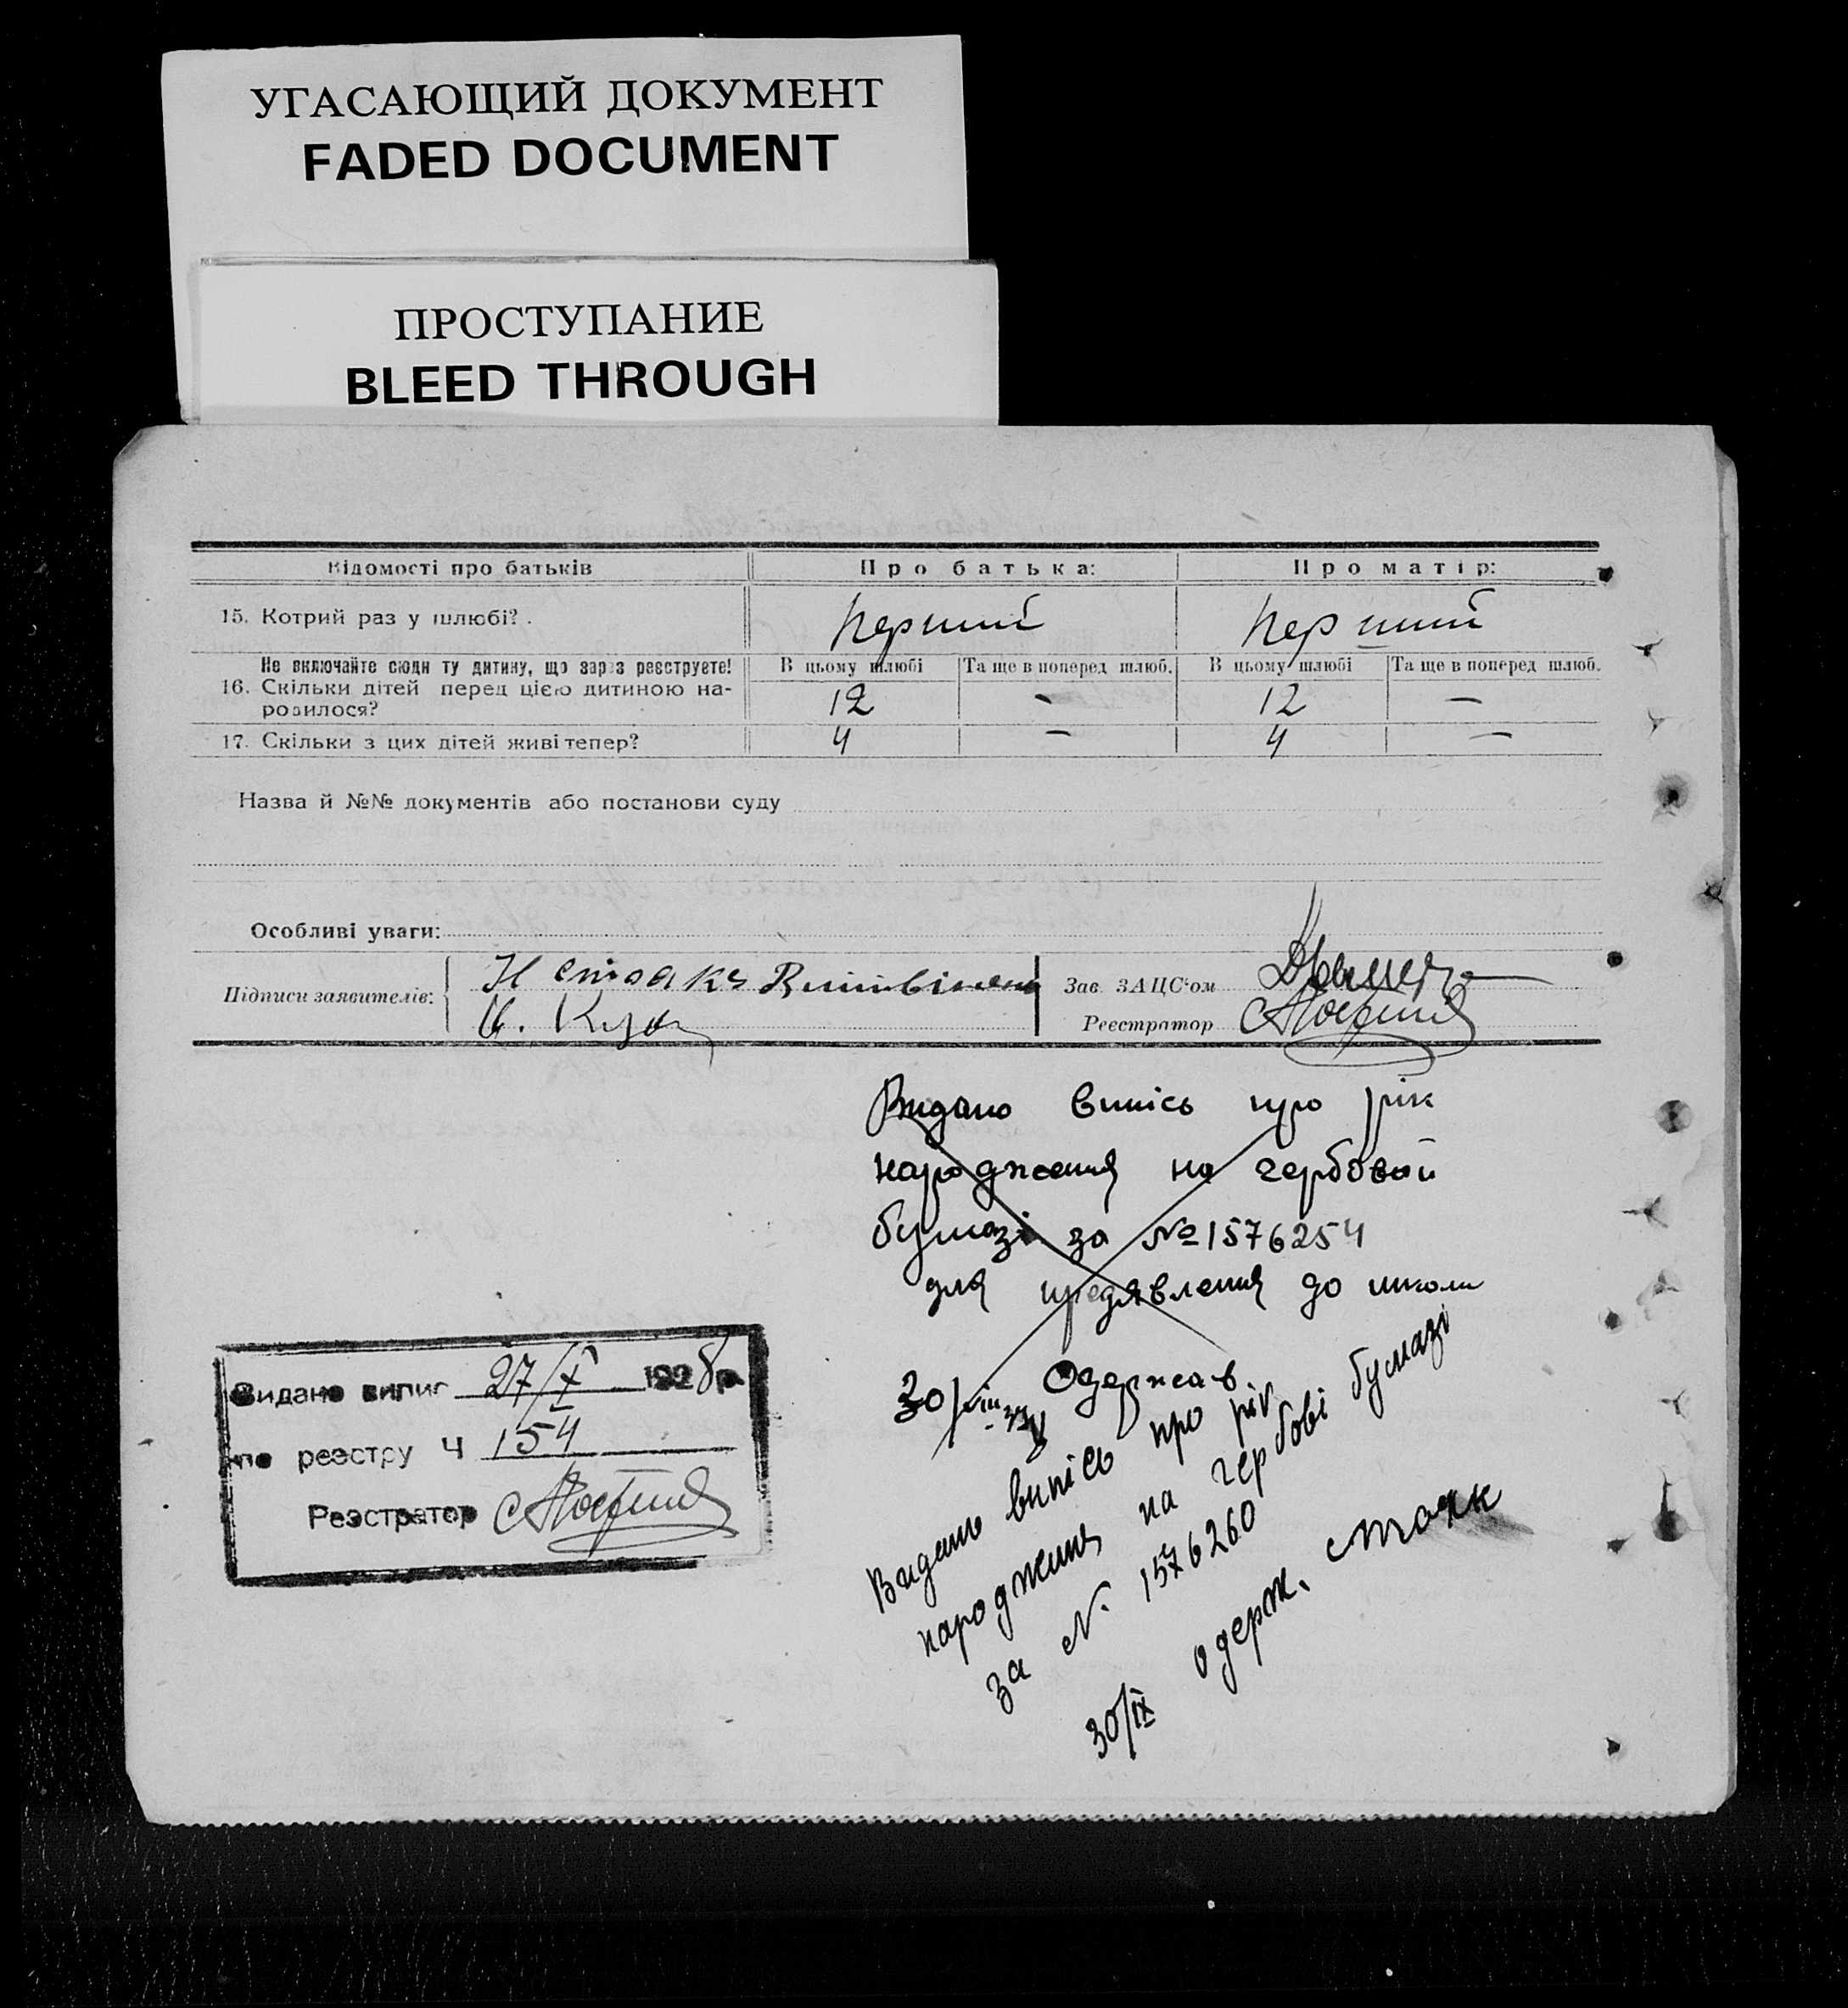 УГАСАЮЩИЙ ДОКУМЕНТ
FADED DOCUMENT
ПРОСТУПАНИЕ
BLEED THROUGH
Відомості про батьків Про батька: Про матір:
15. Котрий раз у шлюбі? . перший перший
Не включайте сюди ту дитину, що зараз реєструєте! В цьому шлюбі Та ще в поперед шлюб. В цьому шлюбі Та ще в поперед шлюб.
16. Скільки дітей перед цією дитиною на-
родилося? 12 — 12 —
17. Скільки з цих дітей живі тепер? 4 — 4 —
Назва й №№ документів або постанови суду
Особливі уваги:
Підписи заявителів:
Зав. ЗАЦС'ом
Реестратор
Видано випісь про рік
народження на гербовой
бумазі за № 1576254
для предявления до школи
30/VIII Одержав.
Видано випісь про рік
народження на гербові бумазі
за N. 1576260
30/IX одерж. Стоак
Видано випис 27/X 1928 р.
по реэстру Ч 154
Реэстратор